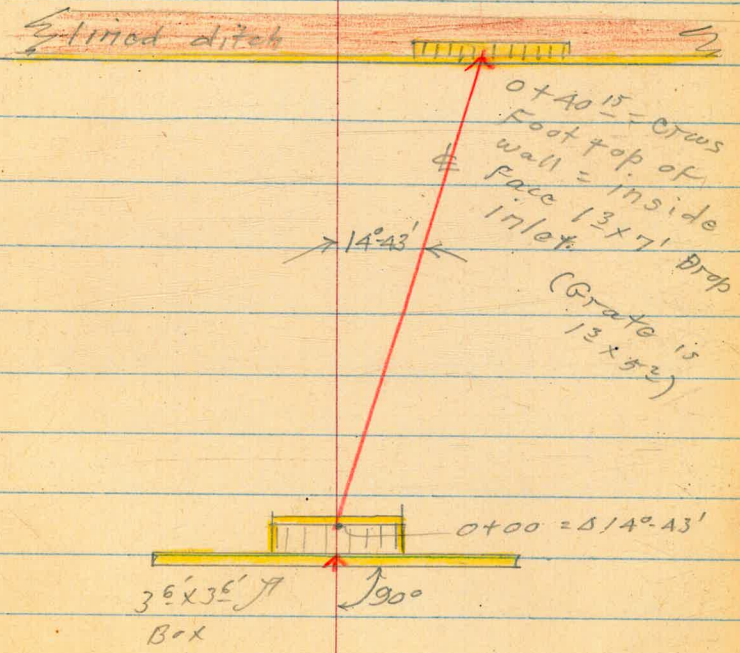 lined ditch
0+40 15 = crws
Foot top of
wall = inside
Face 1 3 x 7' Drop
inlet.
(Grate is
1 3 x 5 2)
℄
14°-43'
0+00 = Δ 14°-43'
3 6' x 3 6'
Box
90°